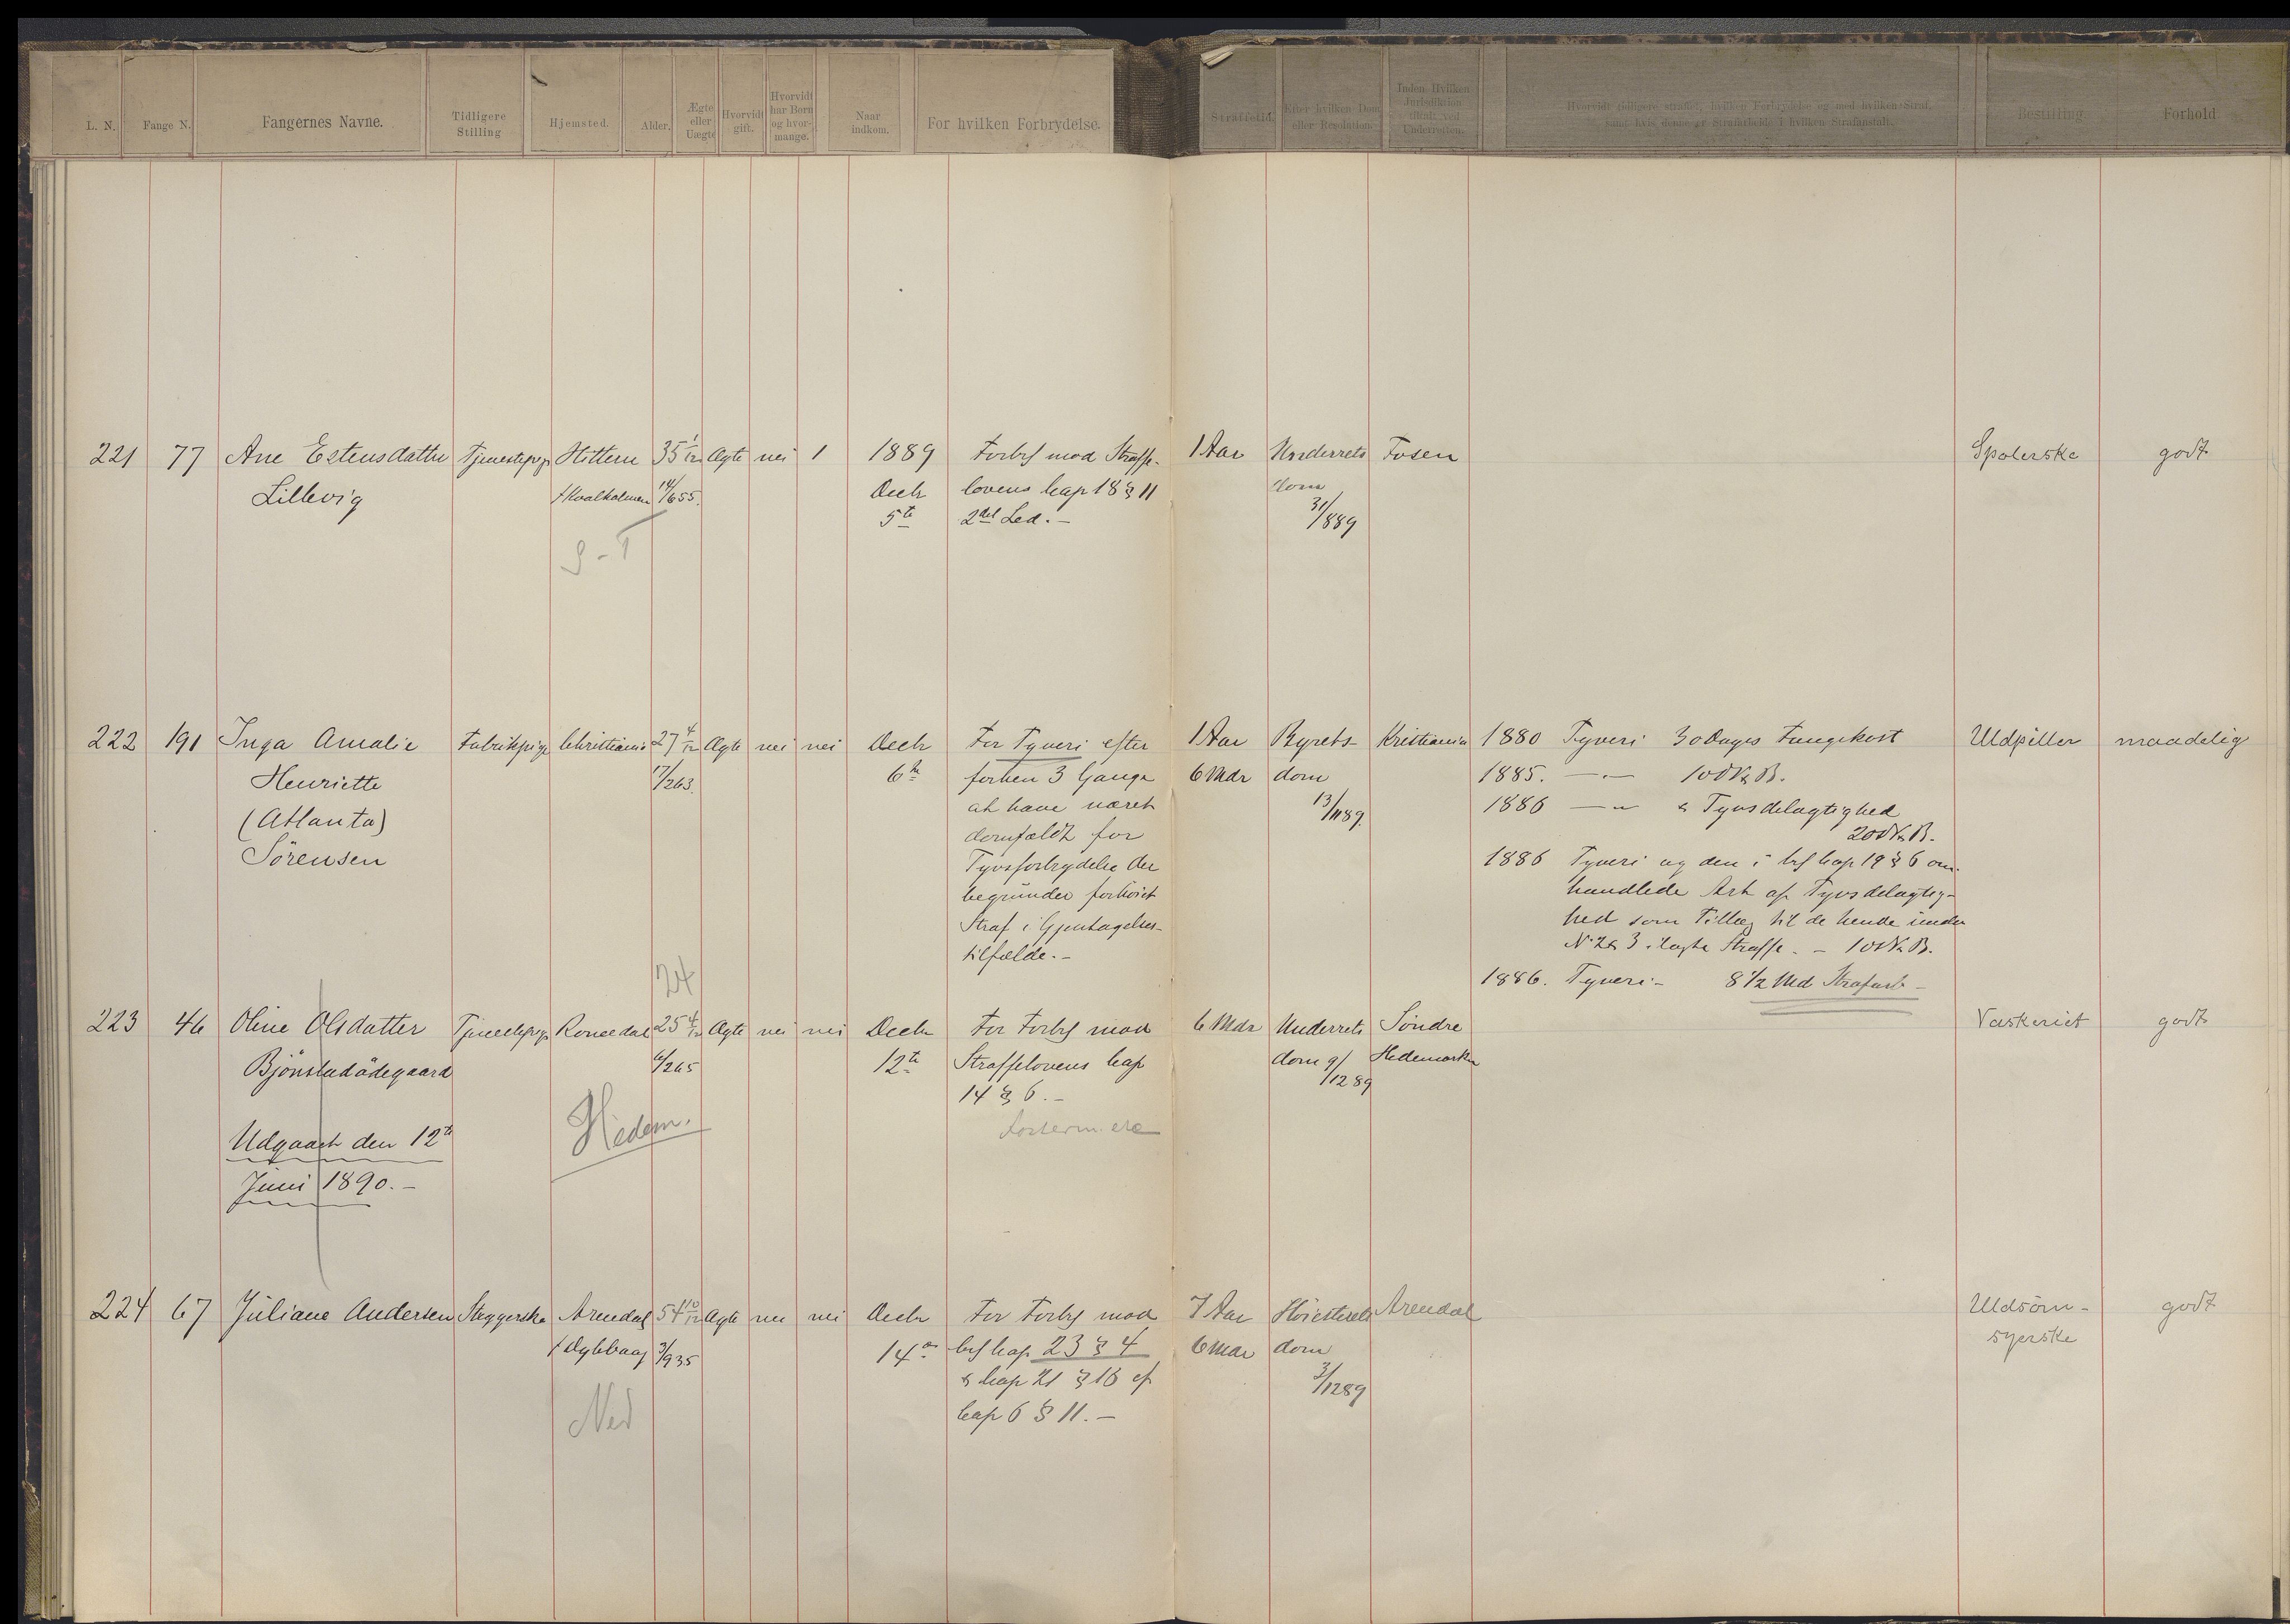 L. N. Fange N. Fangernes Navne. Tidligere Stilling Hjemsted. Alder. Ægte eller Uægte Hvorvidt gift. Hvorvidt har Børn og hvormange. Naar indkom. For hvilken Forbrydelse. Straffetid. Efter hvilken Dom eller Resolution. Inden Hvilken Jurisdiktion tiltalt ved Underretten. Hvorvidt tidligere straffet, hvilken Forbrydelse og med hvilken Straf, samt hvis denne er Strafarbeide i hvilken Strafanstalt. Bestilling. Forhold
221 77 Ane Estensdatter Tjenestepige Hittern 35 1/12 Ægte nei 1 1889 Forbr mod Straffe- 1 Aar Underrets Fosen Spolerske godt
Lillevig / Kvalholmen 14/655. Decbr lovens Cap 18 § 11 dom
5te 2det Led. - 31/889
S-T
222 191 Inga Amalie Fabrikpige Christiania 27 4/12 Ægte nei nei Decbr For Tyveri efter 1 Aar Byrets- Kristiania 1880 Tyveri 30 Dages Fangekost Uldpiller maadelig
Henriette 17/263. 6te forhen 3 Gange 6 Mdr dom 1885. —"— 10 d V & B.
(Atlanta) at have været 13/1189. 1886 —"— & Tyvsdelagtighed
Sörensen domfældt for 20 d V & B.
Tyvsforbrydelse der 1886 Tyveri og den i Lovs Cap 19 § 6 om-
begrunder forhöiet handlede Art af Tyvsdelagtig-
Straf i Gjentagelses- hed som Tillæg til de hende under
tilfælde. - N: 2 & 3 ilagte Straffe. - 10 d V & B.
24 1886. Tyveri - 8 1/2 Md Strafarb -
223 46 Oline Olsdatter Tjenestepige Romedal 25 4/12 Ægte nei nei Decbr For Forbr mod 6 Mdr Underrets Söndre Vaskeriet godt
Björnstadödegaard 6/265 12te Straffelovens Cap dom 9/1289 Hedemarken
14 § 6. -
Udgaaet den 12te Hedem.
Juni 1890. -
224 67 Juliane Andersen Steggerske Arendal 54 10/12 Ægte nei nei Decbr For Forbr mod 7 Aar Höiesterets Arendal Uldsöm- godt
3/935 14de Lovs Cap 23 § 4 6 Mdr dom syerske
& Cap 21 § 16 cf 3/1289
Ned Cap 6 § 11. -